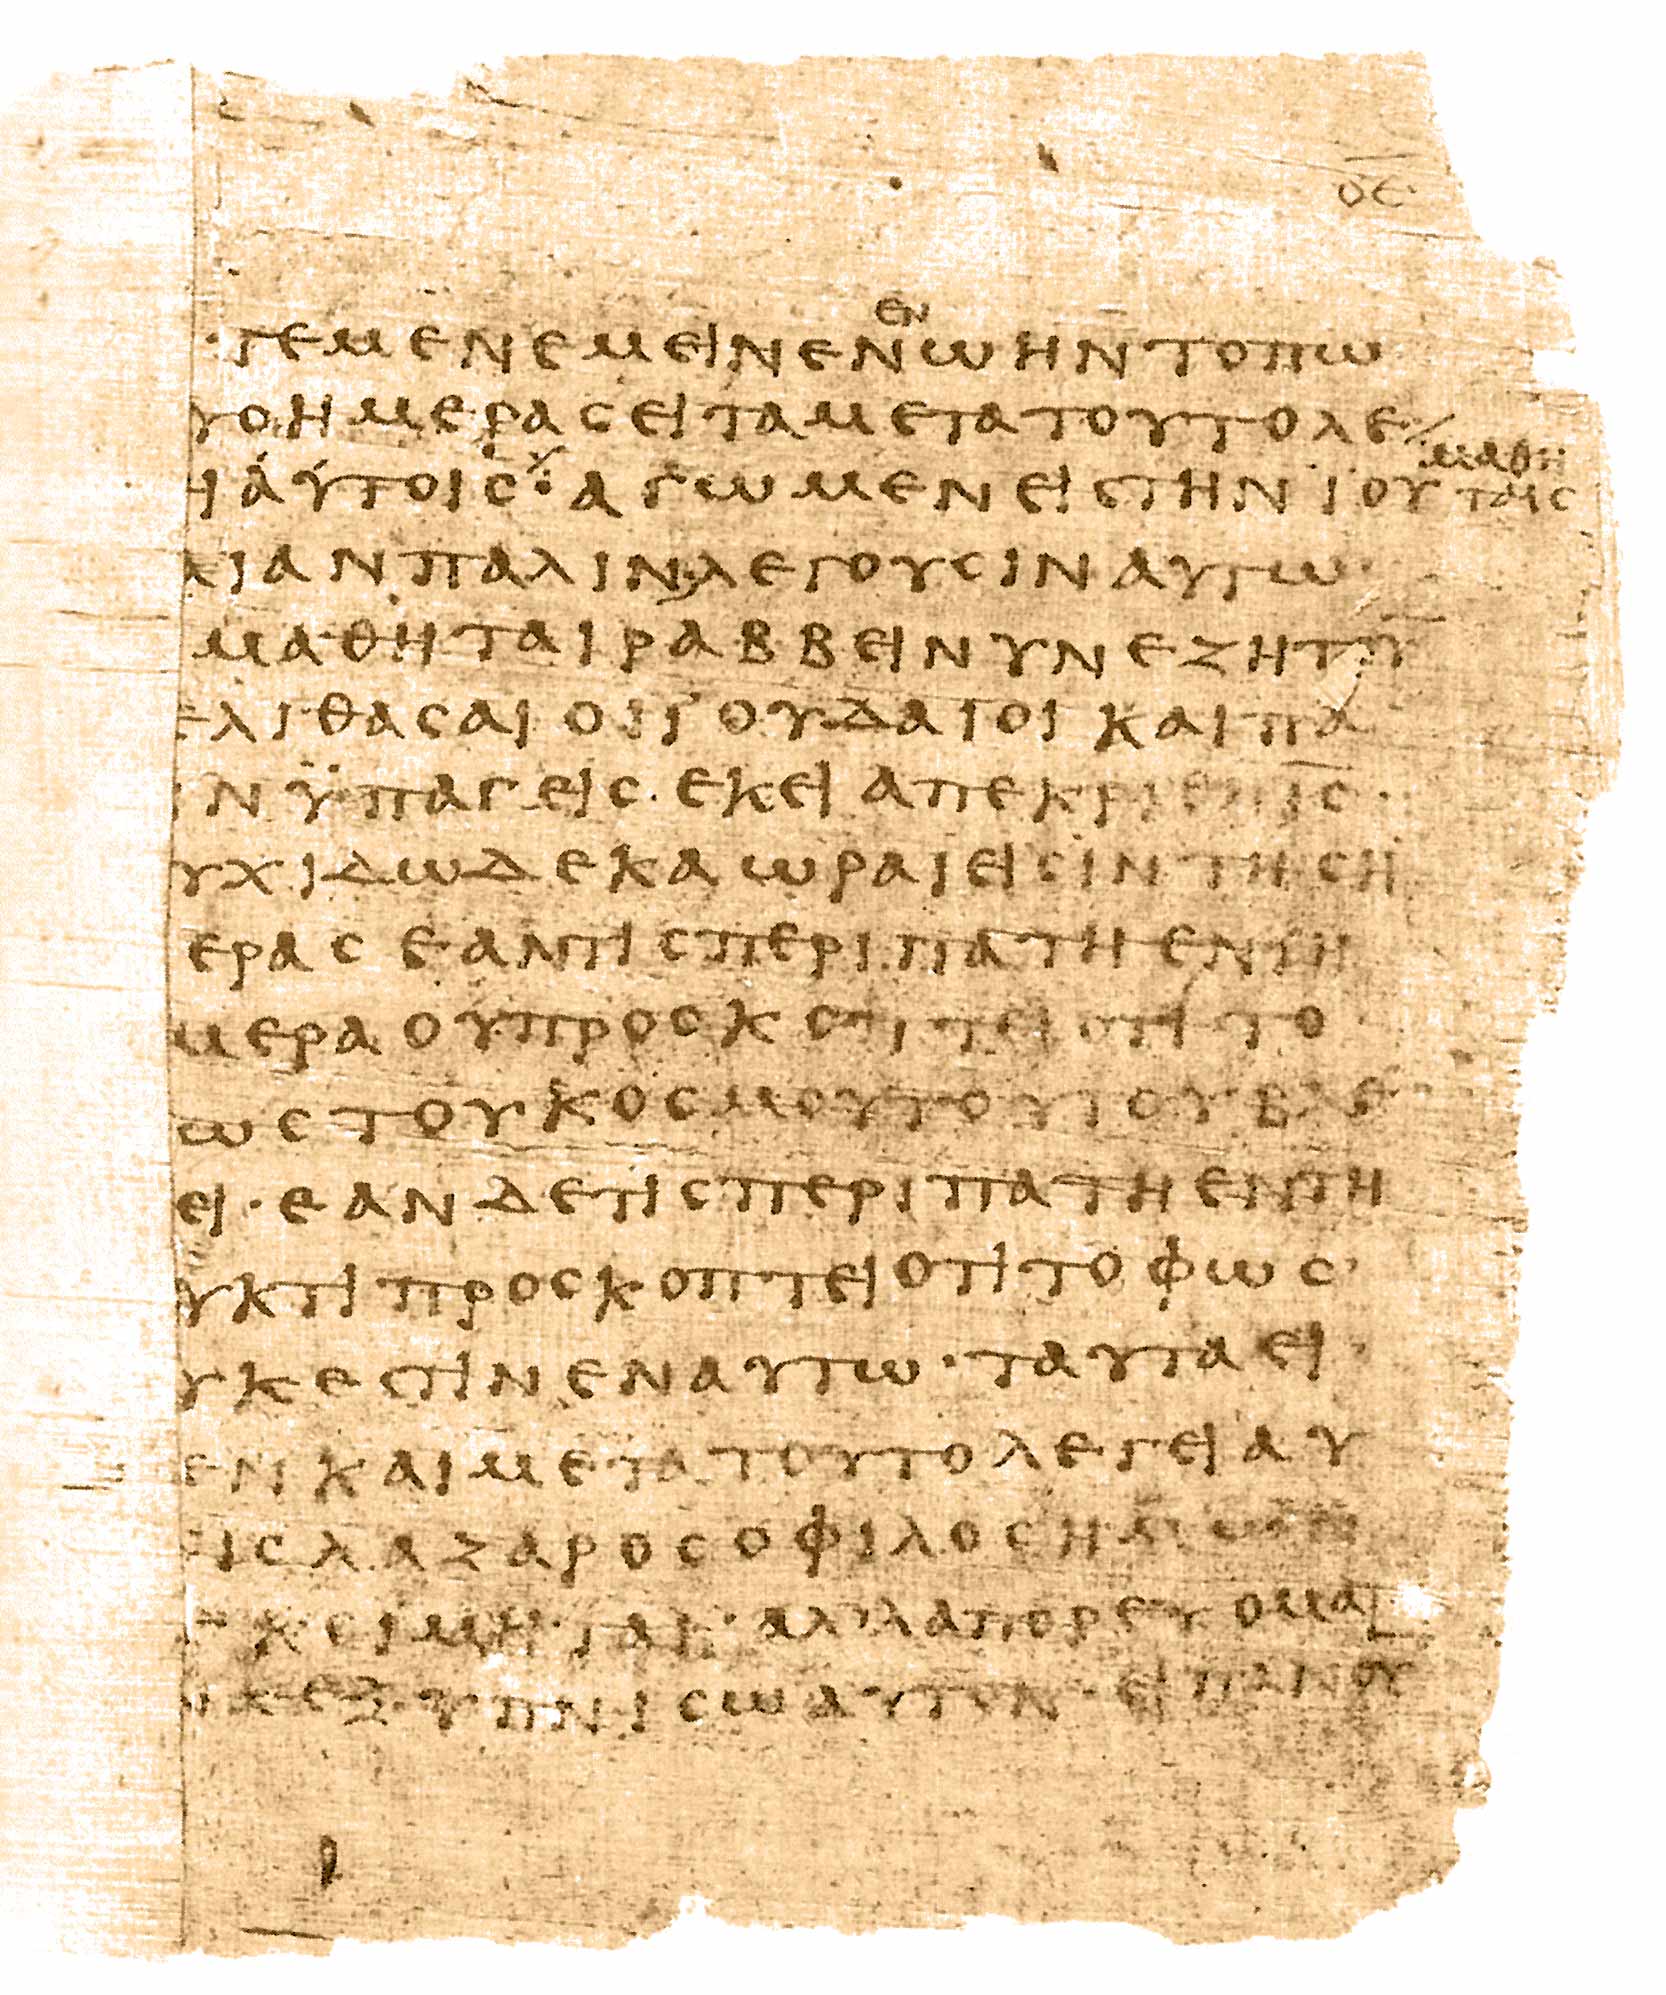 ΟΕ
ΕΝ
ΤΕΜΕΝΕΜΕΙΝΕΝΩΗΝΤΟΠΩ
ΥΟΗΜΕΡΑΣΕΙΤΑΜΕΤΑΤΟΥΤΟΛΕ
ΜΑΘΗ
ΤΑΙΣ
ΑΥΤΟΙΣ ΑΓΩΜΕΝΕΙΣΤΗΝΙΟΥ
ΑΙΑΝΠΑΛΙΝΛΕΓΟΥΣΙΝΑΥΤΩ
ΜΑΘΗΤΑΙΡΑΒΒΕΙΝΥΝΕΖΗΤΟΥ
ΕΛΙΘΑΣΑΙΟΙΪΟΥΔΑΙΟΙΚΑΙΠΑ
ΙΝΫΠΑΓΕΙΣ·ΕΚΕΙΑΠΕΚΡΙΘΗΙΣ·
ΥΧΙΔΩΔΕΚΑΩΡΑΙΕΙΣΙΝΤΗΣΗ
ΕΡΑΣΕΑΝΤΙΣΠΕΡΙΠΑΤΗΕΝΤΗ
ΜΕΡΑΟΥΠΡΟΣΚΟΠΤΕΙΟΤΙΤΟ
ΩΣΤΟΥΚΟΣΜΟΥΤΟΥΤΟΥΒΛΕ
ΕΙ·ΕΑΝΔΕΤΙΣΠΕΡΙΠΑΤΗΕΝΤΗ
ΥΚΤΙΠΡΟΣΚΟΠΤΕΙΟΤΙΤΟΦΩΣ·
ΥΚΕΣΤΙΝΕΝΑΥΤΩ·ΤΑΥΤΑΕΙ
ΕΝΚΑΙΜΕΤΑΤΟΥΤΟΛΕΓΕΙΑΥ
ΙΣΛΑΖΑΡΟΣΟΦΙΛΟΣΗΜΩΝ
ΕΚΟΙΜΗΤΑΙ·ΑΛΛΑΠΟΡΕΥΟΜΑΙ
ΝΑΕΞΥΠΝΙΣΩΑΥΤΟΝ·ΕΙΠΑΝΟΥ